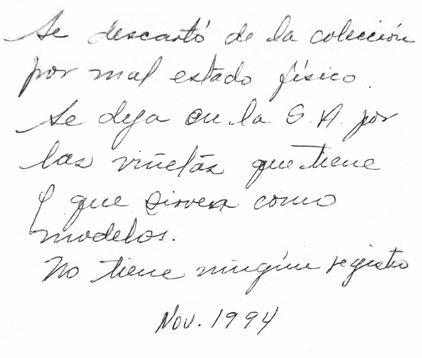 Se descartó de la colección
por mal estado físico.
Se deja en la S. A. por
las viñetas que tiene
y que sirven como
modelos.
No tiene ningún registro
Nov. 1994